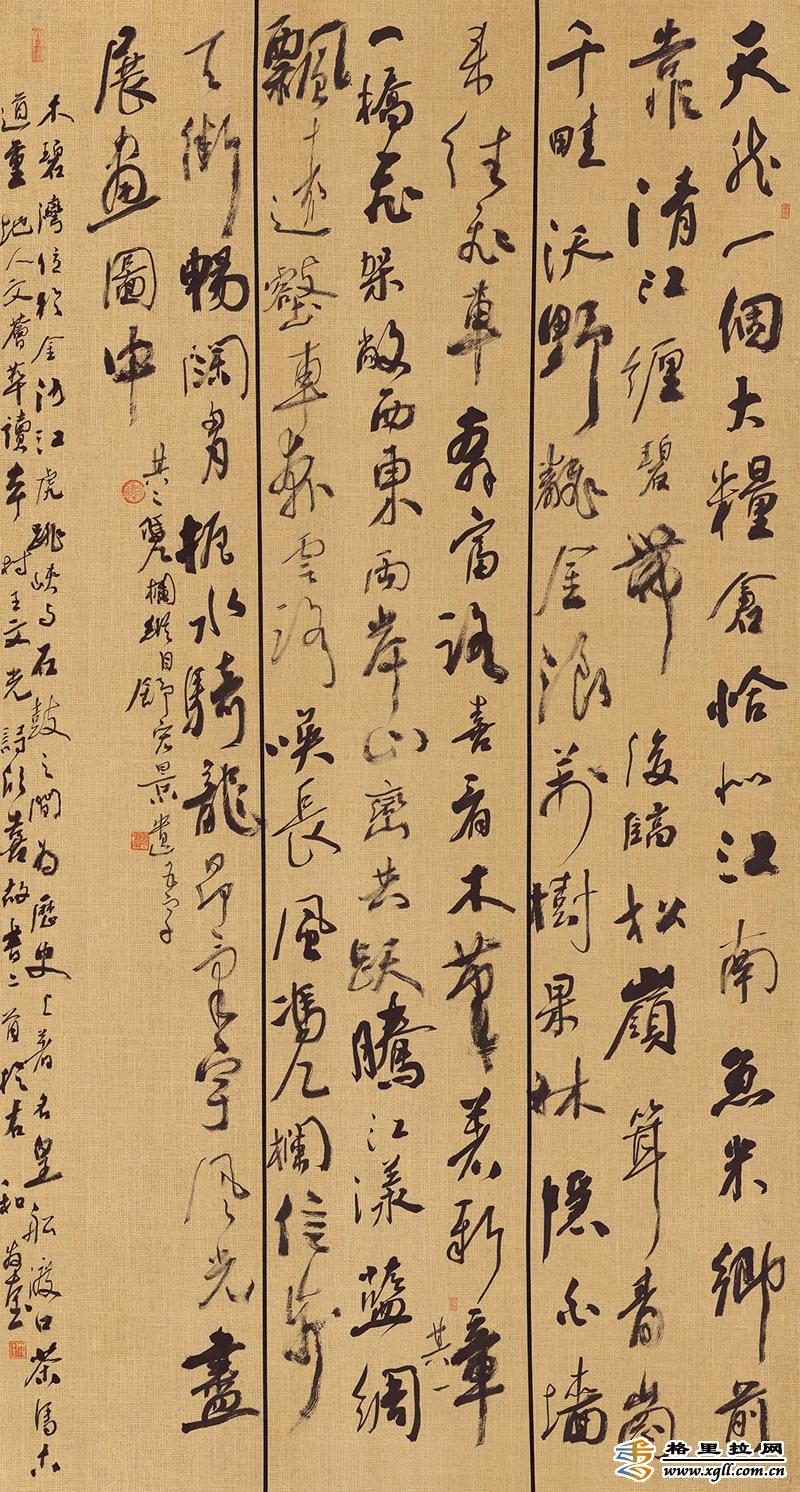 天然一個大糧倉恰似江南魚米鄉前
靠清江纏碧帶後臨松嶺聳青崗
千畦沃野翻金浪萬樹果林隱白墻
来往飛車奔富路喜看木著新章
其一
一橋飛架敞西東兩岸山巒共躍騰江漾藍綢
飄遠壑車奔雲路喚長風憑欄信步
天街暢闊胸水騎龍昂宇風光盡
展畫圖中
其二
欄縱目景遺五字
木碧灣位於金沙江虎跳峽与石鼓之間为歷史上著名皇船渡口茶馬古
道重地人文薈萃讀本村王文光詩欣喜故書二首於右 和
格里拉网
www.xgll.com.cn